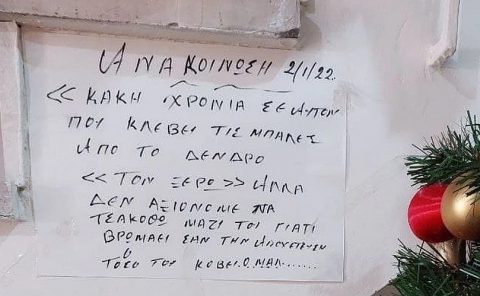 ΑΝΑΚΟΙΝΩΣΗ 2/1/22.
<< ΚΑΚΗ ΧΡΟΝΙΑ ΣΕ ΑΥΤΟΝ
ΠΟΥ ΚΛΕΒΕΙ ΤΙΣ ΜΠΑΛΕΣ
ΑΠΟ ΤΟ ΔΕΝΔΡΟ
<< ΤΟΝ ΞΕΡΩ >> ΑΛΛΑ
ΔΕΝ ΑΞΙΟΝΟΜΕ ΝΑ
ΤΣΑΚΟΘΩ ΜΑΖΙ ΤΟΥ ΓΙΑΤΙ
ΒΡΩΜΑΕΙ ΣΑΝ ΤΗΝ
ΤΟΣΟ ΤΟΥ ΚΟΒΕΙ.Ο ΜΑΛ.......